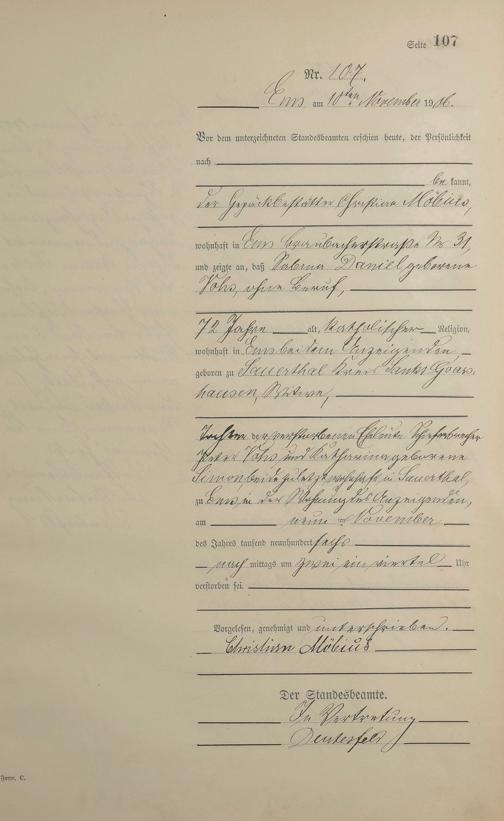 Seite 107
Nr. 107.
Ems am 10ten November 1906.
Vor dem unterzeichneten Standesbeamten erschien heute, der Persönlichkeit
nach
be kannt,
der Gepäckbestätter Christian Möbius,
wohnhaft in Ems Braubacherstraße Nr 31,
und zeigte an, daß Sabina Daniel geborene
ohne Beruf,
72 Jahre alt, katholischer Religion,
wohnhaft in Ems bei dem Anzeigenden
geboren zu Sauerthal Kreis Sankt Goars
hausen, Witwe,
Tochter der verstorbenen Eheleute
Peter und Katharina geborene
Simon, beide zuletzt wohnhaft in Sauerthal,
zu Ems, in der Wohnung des Anzeigenden,
am neun ten November
des Jahres tausend neunhundert sechs
nach mittags um zwei ein viertel Uhr
verstorben sei.
Vorgelesen, genehmigt und unterschrieben.
Christian Möbius
Der Standesbeamte.
In Vertretung
Form. C.